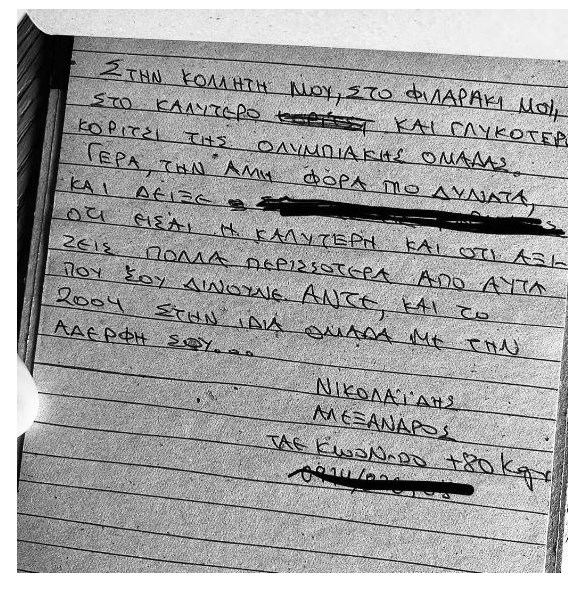 ΣΤΗΝ ΚΟΛΛΗΤΗ ΜΟΥ, ΣΤΟ ΦΙΛΑΡΑΚΙ ΜΟΥ,
ΣΤΟ ΚΑΛΥΤΕΡΟ ΚΑΙ ΓΛΥΚΟΤΕΡ
ΚΟΡΙΤΣΙ ΤΗΣ ΟΛΥΜΠΙΑΚΗΣ ΟΜΑΔΑΣ.
ΓΕΡΑ, ΤΗΝ ΑΛΛΗ ΦΟΡΑ ΠΙΟ ΔΥΝΑΤΑ,
ΚΑΙ ΔΕΙΞΕ
ΟΤΙ ΕΙΣΑΙ Η ΚΑΛΥΤΕΡΗ ΚΑΙ ΟΤΙ ΑΞΙ-
ΖΕΙΣ ΠΟΛΛΑ ΠΕΡΙΣΣΟΤΕΡΑ ΑΠΟ ΑΥΤΑ
ΠΟΥ ΣΟΥ ΔΙΝΟΥΝΕ. ΑΝΤΕ, ΚΑΙ ΤΟ
2004 ΣΤΗΝ ΙΔΙΑ ΟΜΑΔΑ ΜΕ ΤΗΝ
ΑΔΕΡΦΗ ΣΟΥ...
ΝΙΚΟΛΑΪΔΗΣ
ΑΛΕΞΑΝΔΡΟΣ
ΤΑΕ ΚWΟΝ ΔΟ +80 Kgr